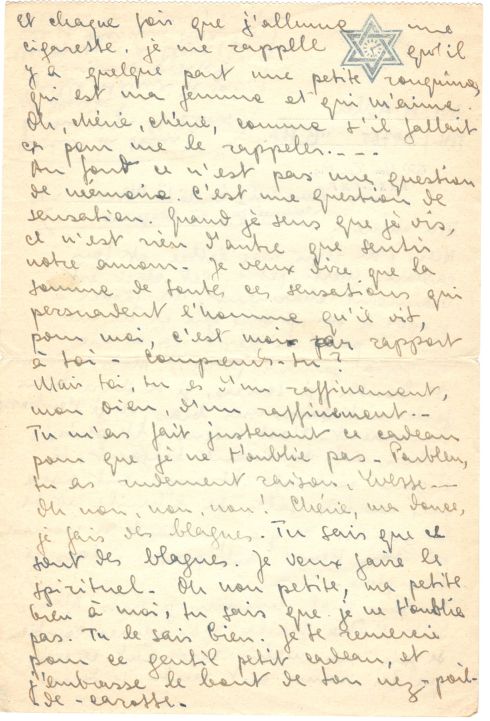 et chaque fois que j'allume une
cigarette, je me rappelle qu'il
y a quelque part une petite rouquine,
qui est ma femme et qui m'aime.
Oh, chérie, chérie, comme s'il fallait
ça pour me le rappeler....
Au fond ce n'est pas une question
de mémoire. C'est une question de
sensation. Quand je sens que je vis,
ce n'est rien d'autre que sentir
notre amour. Je veux dire que la
somme de toutes ces sensations qui
persuadent l'homme qu'il vit,
pour moi, c'est moi par rapport
à toi - comprends-tu ?
Mais toi, tu es d'un raffinement,
mon Dieu, d'un raffinement..
Tu m'as fait justement ce cadeau
pour que je ne t'oublie pas - Parbleu,
tu as rudement raison,
Oh non, non, non ! Chérie, ma douce,
je fais des blagues. Tu sais que ce
sont des blagues. Je veux faire le
spirituel. Oh non petite, ma petite
bien à moi, tu sais que je ne t'oublie
pas. Tu le sais bien. Je te remercie
pour ce gentil petit cadeau, et
j'embrasse le bout de ton nez - poil-
de-carotte.